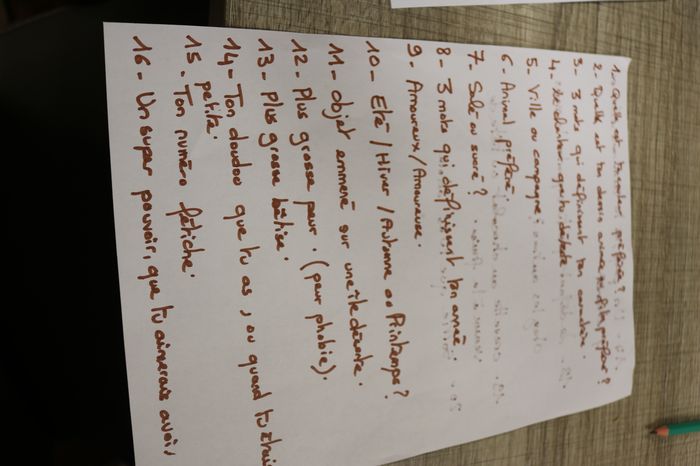 1- Quelle est ta couleur préférée?
2- Quelle est ton dessin animé préféré?
3- 3 mots qui définissent ton caractère.
4-
5- Ville ou campagne
6- Animal préféré
7- Salé ou sucré?
8- 3 mots qui définissent ton année.
9- Amoureux/Amoureuse.
10- Eté/Hiver/Automne ou Printemps?
11- Objet emmené sur une île déserte.
12- Plus grosse peur. (peur phobie).
13- Plus grosse bêtise.
14- Ton doudou que tu as, ou quand tu étais
petite.
15- Ton numéro fétiche.
16- Un super pouvoir, que tu aimerais avoir,